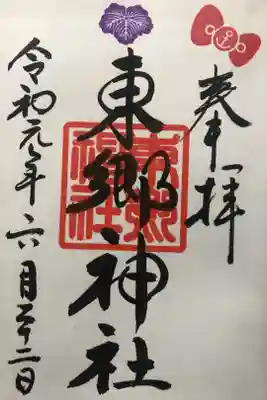 奉拝
東郷神社
東郷神社
令和元年六月二十二日